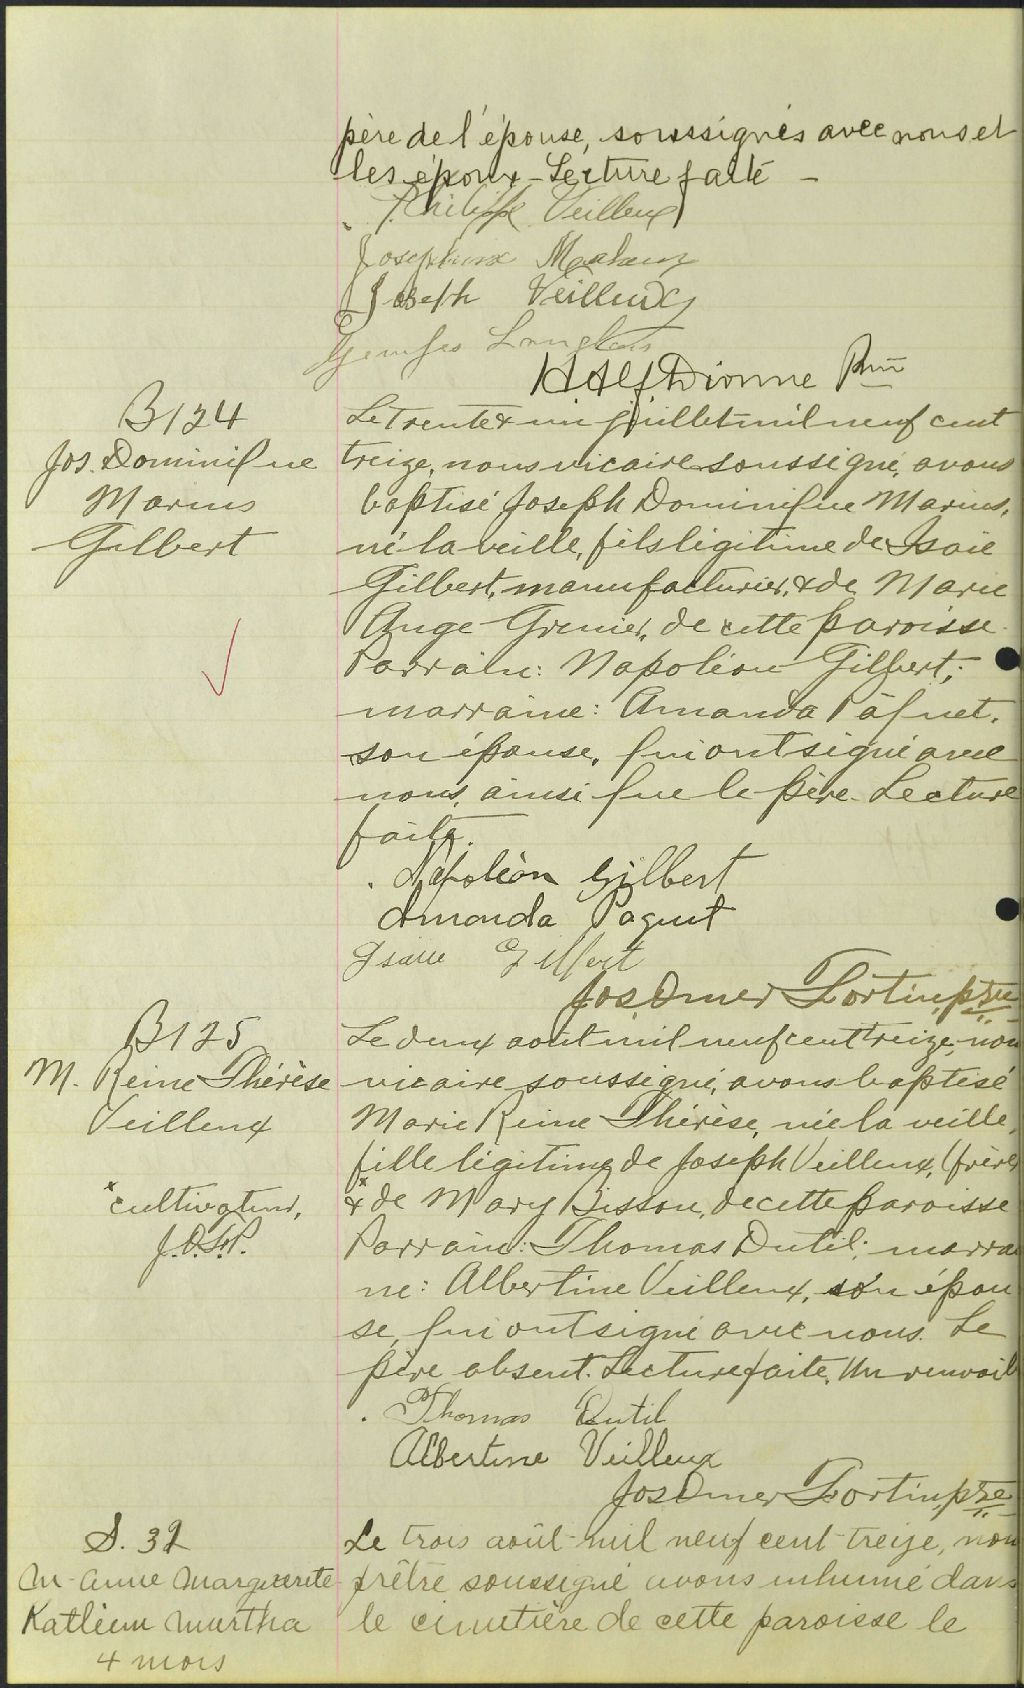 père de l'épouse, soussignés avec nous et
les époux - Lecture faite -
Philippe Veilleux
Josephine
Joseph Veilleux
Georges Langlois
H Alf. Dionne Ptre
B 124
Jos. Dominique
Marius
Gilbert
Le trente & un juillet mil neuf cent
treize, nous vicaire soussigné, avons
baptisé Joseph Dominique Marius,
né la veille, fils légitime de Isaie
Gilbert, manufacturier, & de Marie
Ange Grenier, de cette paroisse.
Parrain: Napoléon Gilbert;
marraine: Amanda Pâquet,
son épouse, qui ont signé avec
nous, ainsi que le père. Lecture
faite.
Napoléon Gilbert
Amanda Paquet
Isaie Gilbert
Jos Omer Fortin, ptre
B 125
M. Reine Thérèse
Veilleux
Le deux août mil neuf cent treize, nous
vicaire soussigné, avons baptisé
Marie Reine Thérèse, née la veille,
fille légitime de Joseph Veilleux, (frère)
x & de Mary Bisson, de cette paroisse
x cultivateur,
J.O.F.P.
Parrain: Thomas Dutil; marrai
ne: Albertine Veilleux, son épou
se, qui ont signé avec nous. Le
père absent. Lecture faite. Un renvoi
Thomas Dutil
Albertine Veilleux
Jos Omer Fortin, ptre
S. 32
M. Anne Marguerite
Katleen Murtha
4 mois
Le trois août mil neuf cent treize, nous
prêtre soussigné avons inhumé dans
le cimetière de cette paroisse le